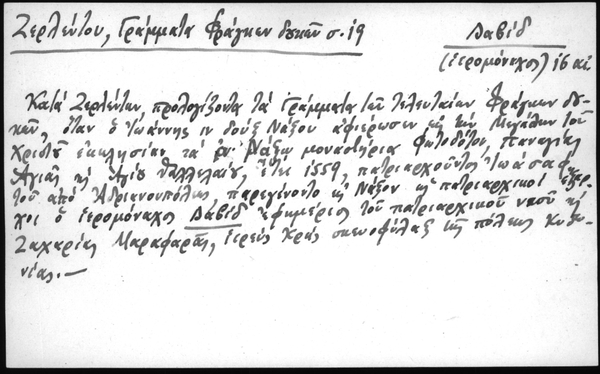 Ζερλέντου, Γράμματα Φράγκων δουκῶν σ. 19
Δαβίδ
(ἱερομόναχος) 16 αἰ
Κατά Ζερλέντην, προλογίζοντα τά Γράμματα τῶν τελευταίων Φράγκων δου-
κῶν, ὅταν ὁ Ἰωάννης IV δούξ Νάξου ἀφιέρωσεν εἰς τήν Μεγάλην τοῦ
Χριστοῦ ἐκκλησίαν τά ἐν Νάξῳ μοναστήρια Φωτοδότου, Παναγίας
Ἁγιᾶς καί Ἁγίου Θαλλελαίου, ἔτει 1559, πατριαρχοῦντος Ἰωάσαφ
τοῦ ἀπό Ἀδριανουπόλεως παρεγένοντο εἰς Νάξον ὡς πατριαρχικοί ἔξαρ-
χοι ὁ ἱερομόναχος Δαβίδ ἐφημέριος τοῦ πατριαρχικοῦ ναοῦ καί
Ζαχαρίας Μαραφαρᾶς, ἱερεύς Κρής σκευοφύλαξ τῆς πόλεως Κυδω-
νίας.—